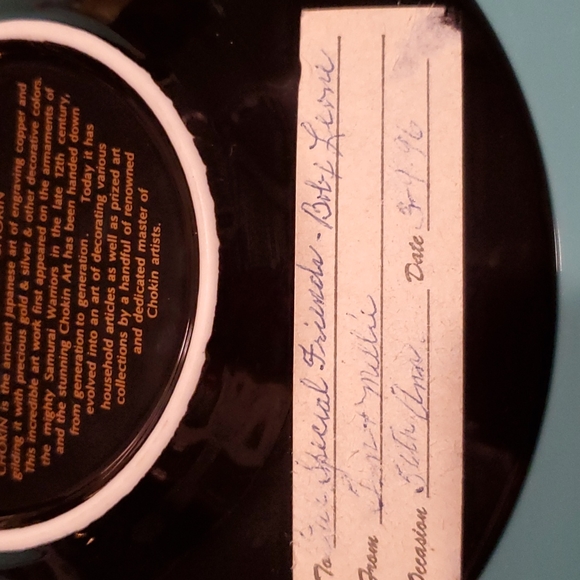 CHOKIN is the ancient Japanese art of engraving copper and
gilding it with precious gold & silver & other decorative colors.
This incredible art work first appeared on the armaments of
the mighty Samurai Warriors in the late 12th century,
and the stunning Chokin Art has been handed down
from generation to generation. Today it has
evolved into an art of decorating various
household articles as well as prized art
collections by a handful of renowned
and dedicated master of
Chokin artists.
To Special Friends - Bob &
From Millie
Occasion 50th Ann. Date 96